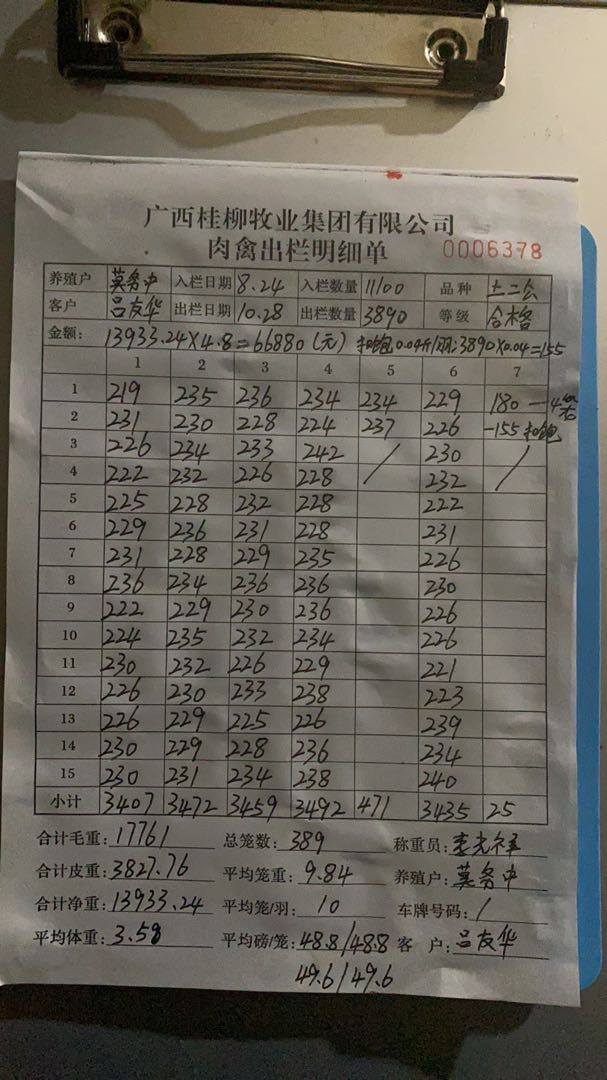 广西桂柳牧业集团有限公司
肉禽出栏明细单 0006378
养殖户 莫务中 入栏日期 8.24 入栏数量 11100 品种 土二公
客户 吕友华 出栏日期 10.28 出栏数量 3890 等级 合格
金额: 13933.24×4.8=66880(元) 扣饱0.04斤/羽:3890×0.04=155
1 2 3 4 5 6 7
1 219 235 236 234 234 229 180 一4
2 231 230 228 224 237 226 -155 扣饱
3 226 234 233 242 / 230 /
4 222 232 226 228 232
5 225 228 232 228 222
6 229 236 231 228 231
7 231 228 229 235 226
8 236 234 236 236 230
9 222 229 230 236 226
10 224 235 232 234 226
11 230 232 226 229 221
12 226 230 233 238 223
13 226 229 225 226 239
14 230 229 228 236 234
15 230 231 234 238 240
小计 3407 3472 3459 3492 471 3435 25
合计毛重: 17761 总笼数: 389 称重员:
合计皮重: 3827.76 平均笼重: 9.84 养殖户: 莫务中
合计净重: 13933.24 平均笼/羽: 10 车牌号码: /
平均体重: 3.58 平均磅/笼: 48.8/48.8 客 户: 吕友华
49.6/49.6